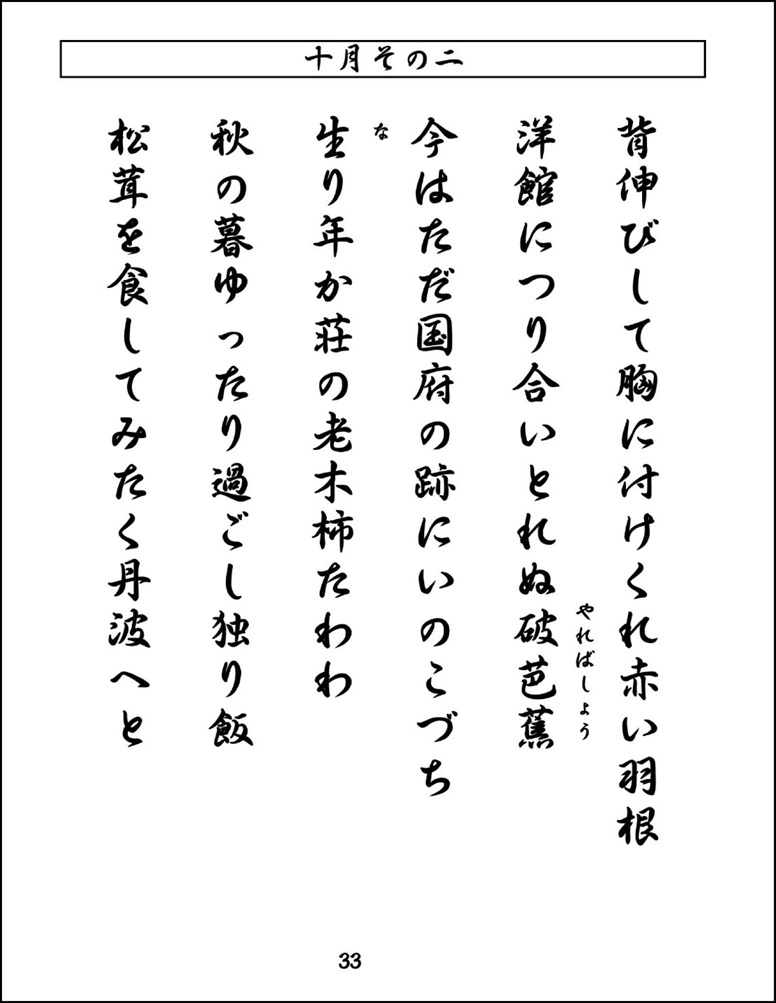 十月その二
背伸びして胸に付けくれ赤い羽根
洋館につり合いとれぬ破芭蕉
やればしょう
今はただ国府の跡にいのこづち
生り年か荘の老木柿たわわ
な
秋の暮ゆったり過ごし独り飯
松茸を食してみたく丹波へと
33